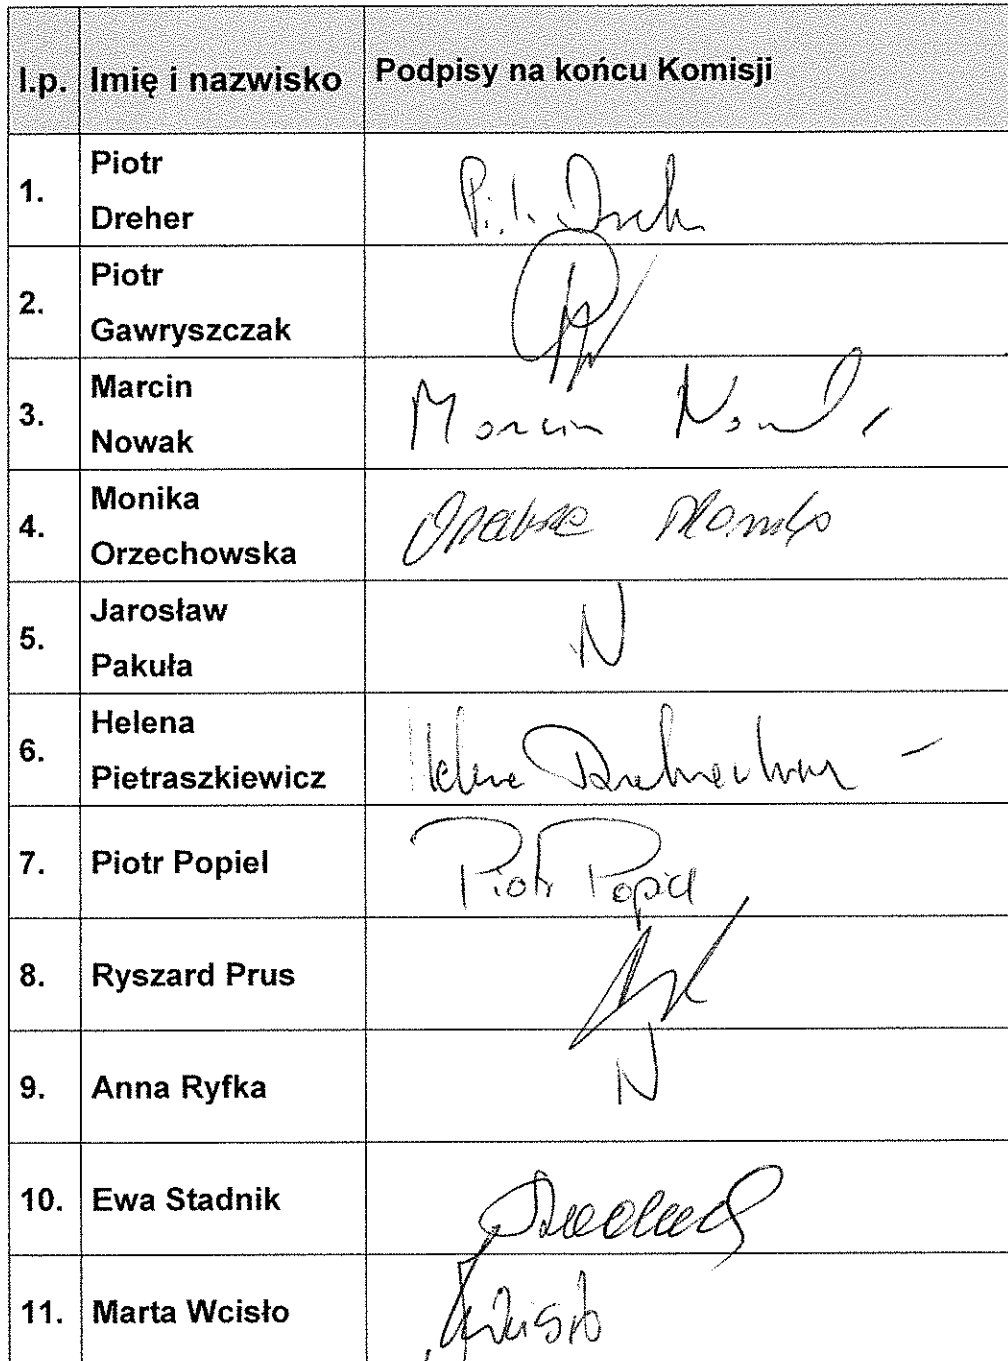 l.p. Imię i nazwisko Podpisy na końcu Komisji
1. Piotr
Dreher
2. Piotr
Gawryszczak
3. Marcin
Nowak
Marcin Nowak
4. Monika
Orzechowska
5. Jarosław
Pakuła
N
6. Helena
Pietraszkiewicz
Helena
7. Piotr Popiel Piotr Popiel
8. Ryszard Prus
9. Anna Ryfka N
10. Ewa Stadnik
11. Marta Wcisło Wcisło